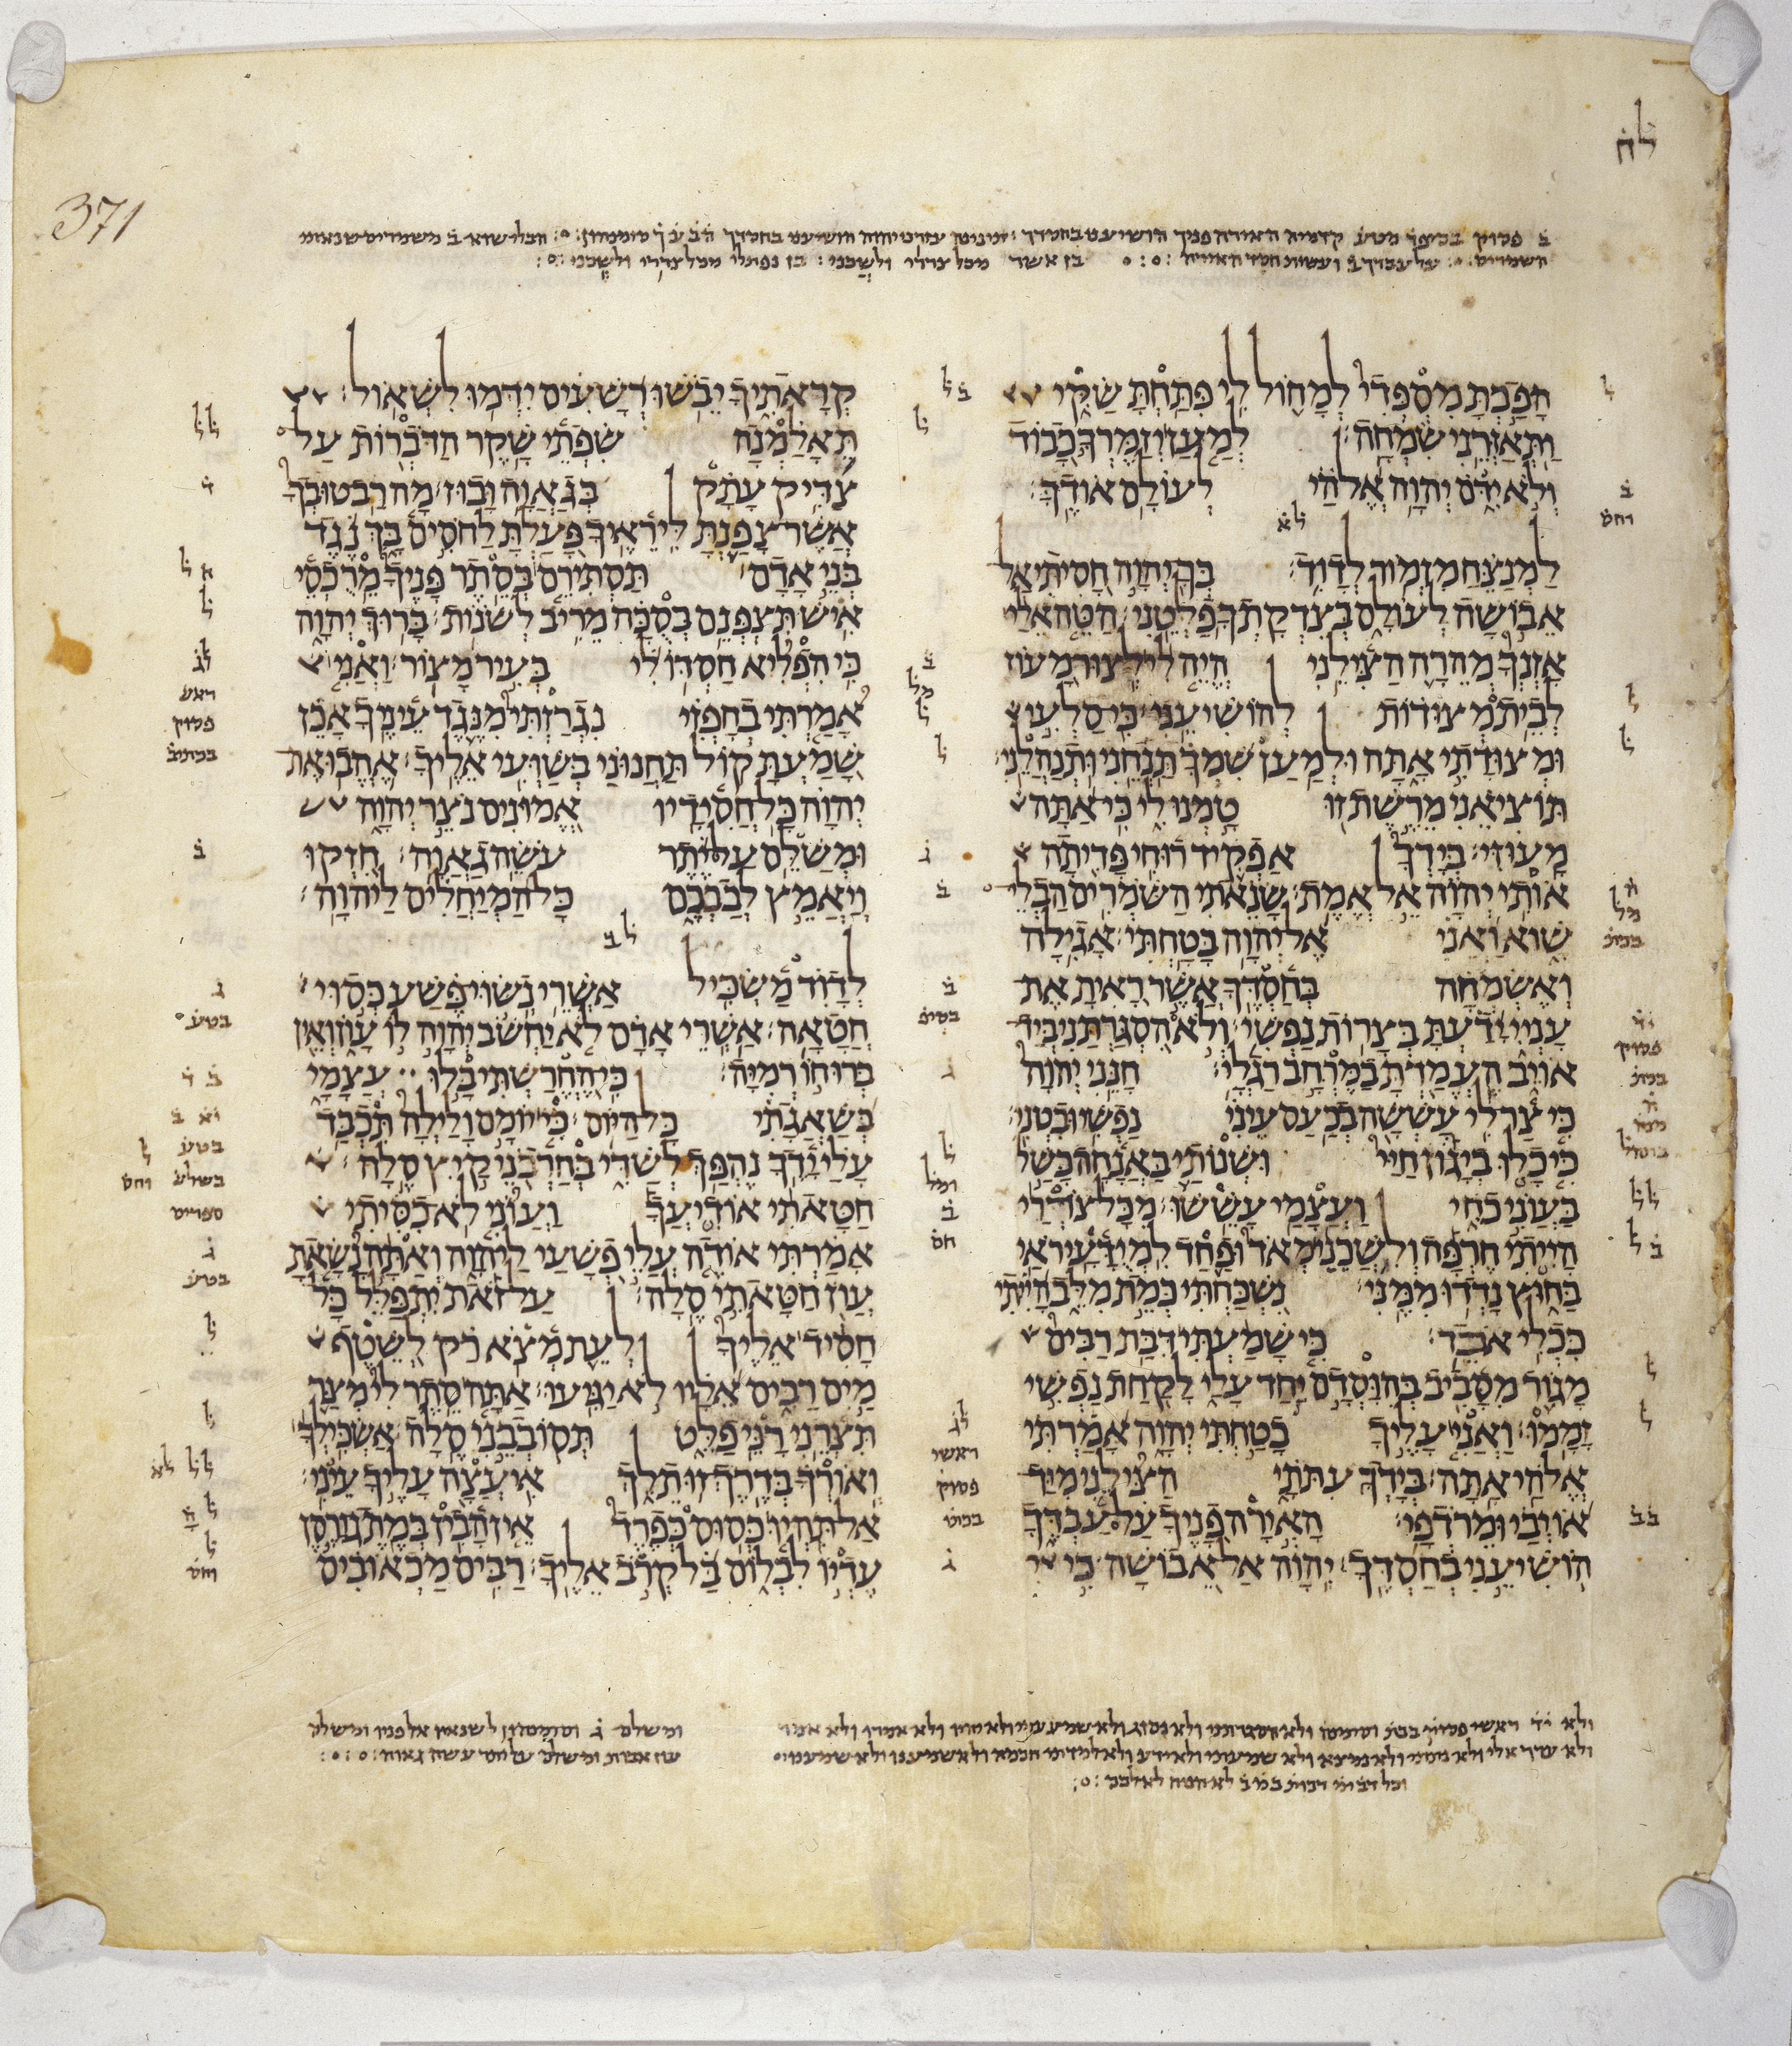 לח
371
הָפַכְתָּ מִסְפְּדִי לְמָחוֹל לִי פִּתַּחְתָּ שַׂקִּי
וַתְּאַזְּרֵנִי שִׂמְחָה׃ לְמַעַן יְזַמֶּרְךָ כָבוֹד
וְלֹא יִדֹּם יְהוָה אֱלֹהַי לְעוֹלָם אוֹדֶךָּ׃
לא
לַמְנַצֵּחַ מִזְמוֹר לְדָוִד׃ בְּךָ יְהוָה חָסִיתִי אַל
אֵבוֹשָׁה לְעוֹלָם בְּצִדְקָתְךָ פַלְּטֵנִי׃ הַטֵּה אֵלַי
אָזְנְךָ מְהֵרָה הַצִּילֵנִי הֱיֵה לִי לְצוּר מָעוֹז
לְבֵית מְצוּדוֹת לְהוֹשִׁיעֵנִי׃ כִּי סַלְעִי
וּמְצוּדָתִי אָתָּה וּלְמַעַן שִׁמְךָ תַּנְחֵנִי וּתְנַהֲלֵנִי׃
תּוֹצִיאֵנִי מֵרֶשֶׁת זוּ טָמְנוּ לִי כִּי אַתָּה
מָעוּזִּי׃ בְּיָדְךָ אַפְקִיד רוּחִי פָּדִיתָה
אוֹתִי יְהוָה אֵל אֱמֶת׃ שָׂנֵאתִי הַשֹּׁמְרִים הַבְלֵי
שָׁוְא וַאֲנִי אֶל יְהוָה בָּטָחְתִּי׃ אָגִילָה
וְאֶשְׂמְחָה בְּחַסְדֶּךָ אֲשֶׁר רָאִיתָ אֶת
עָנְיִי יָדַעְתָּ בְּצָרוֹת נַפְשִׁי׃ וְלֹא הִסְגַּרְתַּנִי בְּיַד
אוֹיֵב הֶעֱמַדְתָּ בַמֶּרְחָב רַגְלָי׃ חָנֵּנִי יְהוָה
כִּי צַר לִי עָשְׁשָׁה בְכַעַס עֵינִי נַפְשִׁי וּבִטְנִי׃
כִּי כָלוּ בְיָגוֹן חַיַּי וּשְׁנוֹתַי בַּאֲנָחָה כָּשַׁל
בַּעֲוֺנִי כֹחִי וַעֲצָמַי עָשֵׁשׁוּ׃ מִכָּל צֹרְרַי
הָיִיתִי חֶרְפָּה וְלִשֲׁכֵנַי מְאֹד וּפַחַד לִמְיֻדָּעָי רֹאַי
בַּחוּץ נָדְדוּ מִמֶּנִּי׃ נִשְׁכַּחְתִּי כְּמֵת מִלֵּב הָיִיתִי
כִּכְלִי אֹבֵד׃ כִּי שָׁמַעְתִּי דִּבַּת רַבִּים
מָגוֹר מִסָּבִיב בְּהִוָּסְדָם יַחַד עָלַי לָקַחַת נַפְשִׁי
זָמָמוּ׃ וַאֲנִי עָלֶיךָ בָטַחְתִּי יְהוָה אָמַרְתִּי
אֱלֹהַי אָתָּה׃ בְּיָדְךָ עִתֹּתָי הַצִּילֵנִי מִיַּד
אוֹיְבַי וּמֵרֹדְפָי׃ הָאִירָה פָנֶיךָ עַל עַבְדֶּךָ
הוֹשִׁיעֵנִי בְחַסְדֶּךָ׃ יְהוָה אַל אֵבוֹשָׁה כִּי
קְרָאתִיךָ יֵבֹשׁוּ רְשָׁעִים יִדְּמוּ לִשְׁאוֹל׃
תֵּאָלַמְנָה שִׂפְתֵי שָׁקֶר הַדֹּבְרוֹת עַל
צַדִּיק עָתָק בְּגַאֲוָה וָבוּז׃ מָה רַב טוּבְךָ
אֲשֶׁר צָפַנְתָּ לִּירֵאֶיךָ פָּעַלְתָּ לַחֹסִים בָּךְ נֶגֶד
בְּנֵי אָדָם׃ תַּסְתִּירֵם בְּסֵתֶר פָּנֶיךָ מֵרֻכְסֵי
אִישׁ תִּצְפְּנֵם בְּסֻכָּה מֵרִיב לְשֹׁנוֹת׃ בָּרוּךְ יְהוָה
כִּי הִפְלִיא חַסְדּוֹ לִי בְּעִיר מָצוֹר׃ וַאֲנִי
אָמַרְתִּי בְחָפְזִי נִגְרַזְתִּי מִנֶּגֶד עֵינֶיךָ אָכֵן
שָׁמַעְתָּ קוֹל תַּחֲנוּנַי בְּשַׁוְּעִי אֵלֶיךָ׃ אֶהֱבוּ אֶת
יְהוָה כָּל חֲסִידָיו אֱמוּנִים נֹצֵר יְהוָה
וּמְשַׁלֵּם עַל יֶתֶר עֹשֵׂה גַאֲוָה׃ חִזְקוּ
וְיַאֲמֵץ לְבַבְכֶם כָּל הַמְיַחֲלִים לַיהוָה׃
לב
לְדָוִד מַשְׂכִּיל אַשְׁרֵי נְשׂוּי פֶּשַׁע כְּסוּי
חֲטָאָה׃ אַשְׁרֵי אָדָם לֹא יַחְשֹׁב יְהוָה לוֹ עָוֺן וְאֵין
בְּרוּחוֹ רְמִיָּה׃ כִּי הֶחֱרַשְׁתִּי בָּלוּ עֲצָמָי
בְּשַׁאֲגָתִי כָּל הַיּוֹם׃ כִּי יוֹמָם וָלַיְלָה תִּכְבַּד
עָלַי יָדֶךָ נֶהְפַּךְ לְשַׁדִּי בְּחַרְבֹנֵי קַיִץ סֶלָה׃
חַטָּאתִי אוֹדִיעֲךָ וַעֲוֺנִי לֹא כִסִּיתִי
אָמַרְתִּי אוֹדֶה עֲלֵי פְשָׁעַי לַיהוָה וְאַתָּה נָשָׂאתָ
עֲוֺן חַטָּאתִי סֶלָה׃ עַל זֹאת יִתְפַּלֵּל כָּל
חָסִיד אֵלֶיךָ לְעֵת מְצֹא רַק לְשֵׁטֶף
מַיִם רַבִּים אֵלָיו לֹא יַגִּיעוּ׃ אַתָּה סֵתֶר לִי מִצַּר
תִּצְּרֵנִי רָנֵּי פַלֵּט תְּסוֹבְבֵנִי סֶלָה׃ אַשְׂכִּילְךָ
וְאוֹרְךָ בְּדֶרֶךְ זוּ תֵלֵךְ אִיעֲצָה עָלֶיךָ עֵינִי׃
אַל תִּהְיוּ כְּסוּס כְּפֶרֶד אֵין הָבִין בְּמֶתֶג וָרֶסֶן
עֶדְיוֹ לִבְלוֹם בַּל קְרֹב אֵלֶיךָ׃ רַבִּים מַכְאוֹבִים